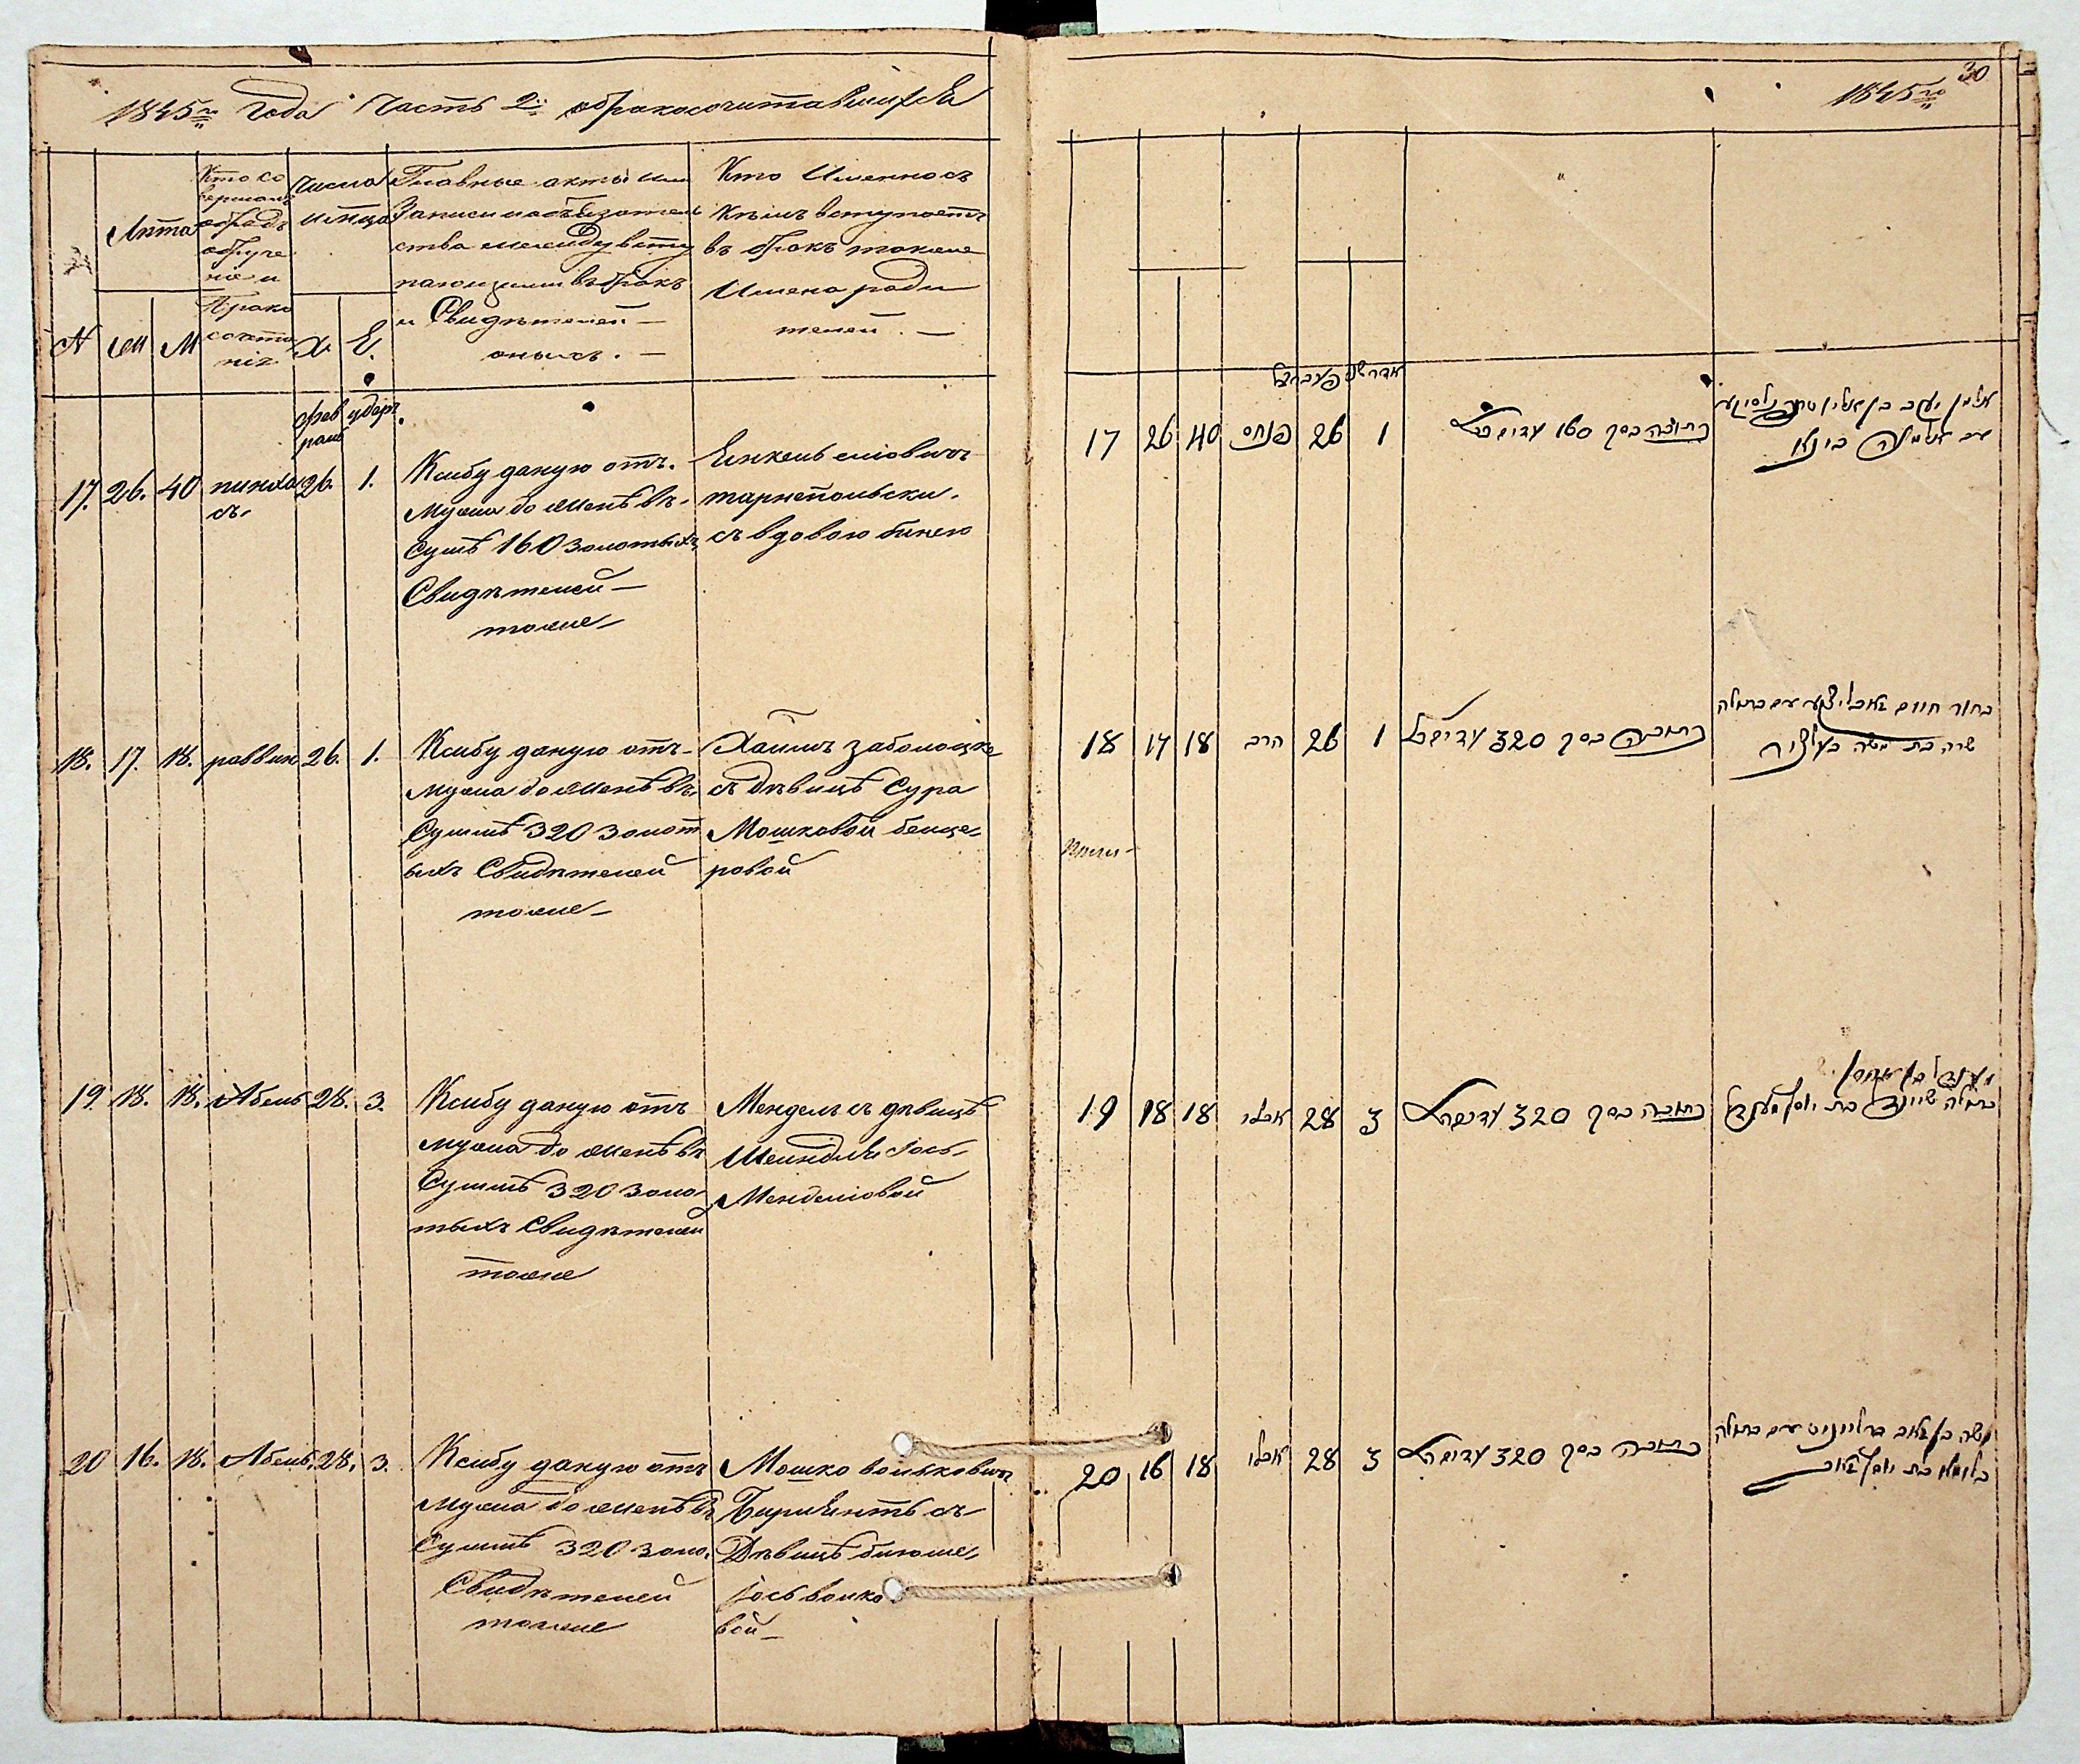 1845го года Часть 2я обракосочитавшихся
Лѣта
Кто со
вершалъ
обрядъ
обруче
нія и
Брако
сочета
нія
Числа
и мѣца
Главные акты или
Записи и обѣзатель
ства межиду всту
паюищими въ бракъ
и Свидѣтелей —
оныхъ. —
Кто Именно съ
Кѣмъ вступаетъ
въ бракъ также
Имена роди
телей. —
N
М
Х.
Е.
фев
раль
удеръ
17. 26. 40 пинха
съ. 26. 1.
Ксибу даную отъ.
Мужа до женѣ въ.
Сумѣ 160 золотыхъ
Свидѣтелей —
тожже
Янкель еліовичъ
тарнепольски.
съ вдовою бинею
18. 17. 18. раввин 26. 1.
Ксибу даную отъ
мужа до женѣ въ
Суммѣ 320 золот
ыхъ Свидѣтелей
тожже —
Хаимъ заболоцке
съ дѣвицѣ Сура
Мошковой бенце
ровой
19. 18. 18. Абель 28. 3.
Ксибу даную отъ
мужа до женѣ въ
Суммѣ 320 золо
тыхъ Свидѣтелей
тожже
Мендель съ дѣвицѣ
Шейндля іось
Менделіовой
20 16. 18. Абель. 28. 3.
Ксибу даную отъ
мужа до женѣ въ
Суммѣ 320 золо.
Свидѣтелей
тожже
Мошко волькович
съ
Дѣвицѣ блюме
іось волко
вой —
1845го
30
17 26 40 פנחס 26 1 כתובה בסך 160
18 17 18 הרב 26 1 כתובה בסך 320
בחור חיים עם בתולה
שרה בת משה
19 18 18 אבלי 28 3 כתובה בסך 320
בתולה שיינדל בת יוסף מענדיל
20 16 18 אבלי 28 3 כתובה בסך 320
משה בן זאב עם בתולה
בלומא בת יוסף זאב